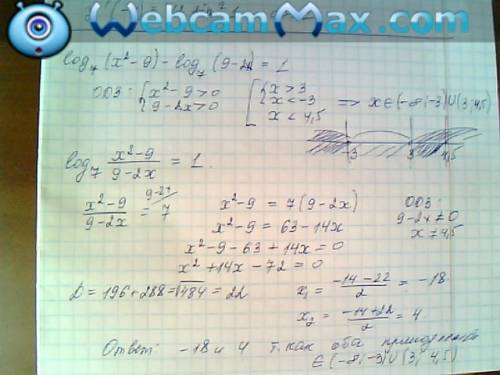 WebcamMax.com
log₇(x²-9) - log₇(9-2x) = 1
ОДЗ: { x²-9>0 9-2x>0 [ { x>3 x<-3 x<4,5 => x∈(-∞;-3)∪(3;4,5)
-3 3 4,5
log₇ (x²-9)/(9-2x) = 1.
(x²-9)/(9-2x) = 7 x²-9 = 7(9-2x) ОДЗ:
x²-9 = 63-14x 9-2x≠0
x²-9-63+14x=0 x≠4,5
x²+14x-72=0
D=196+288=√484=22 x₁ = (-14-22)/2 = -18
x₂ = (-14+22)/2 = 4
Ответ: -18 и 4 т.как оба принадлежат
∈(-∞;-3)∪(3;4,5)